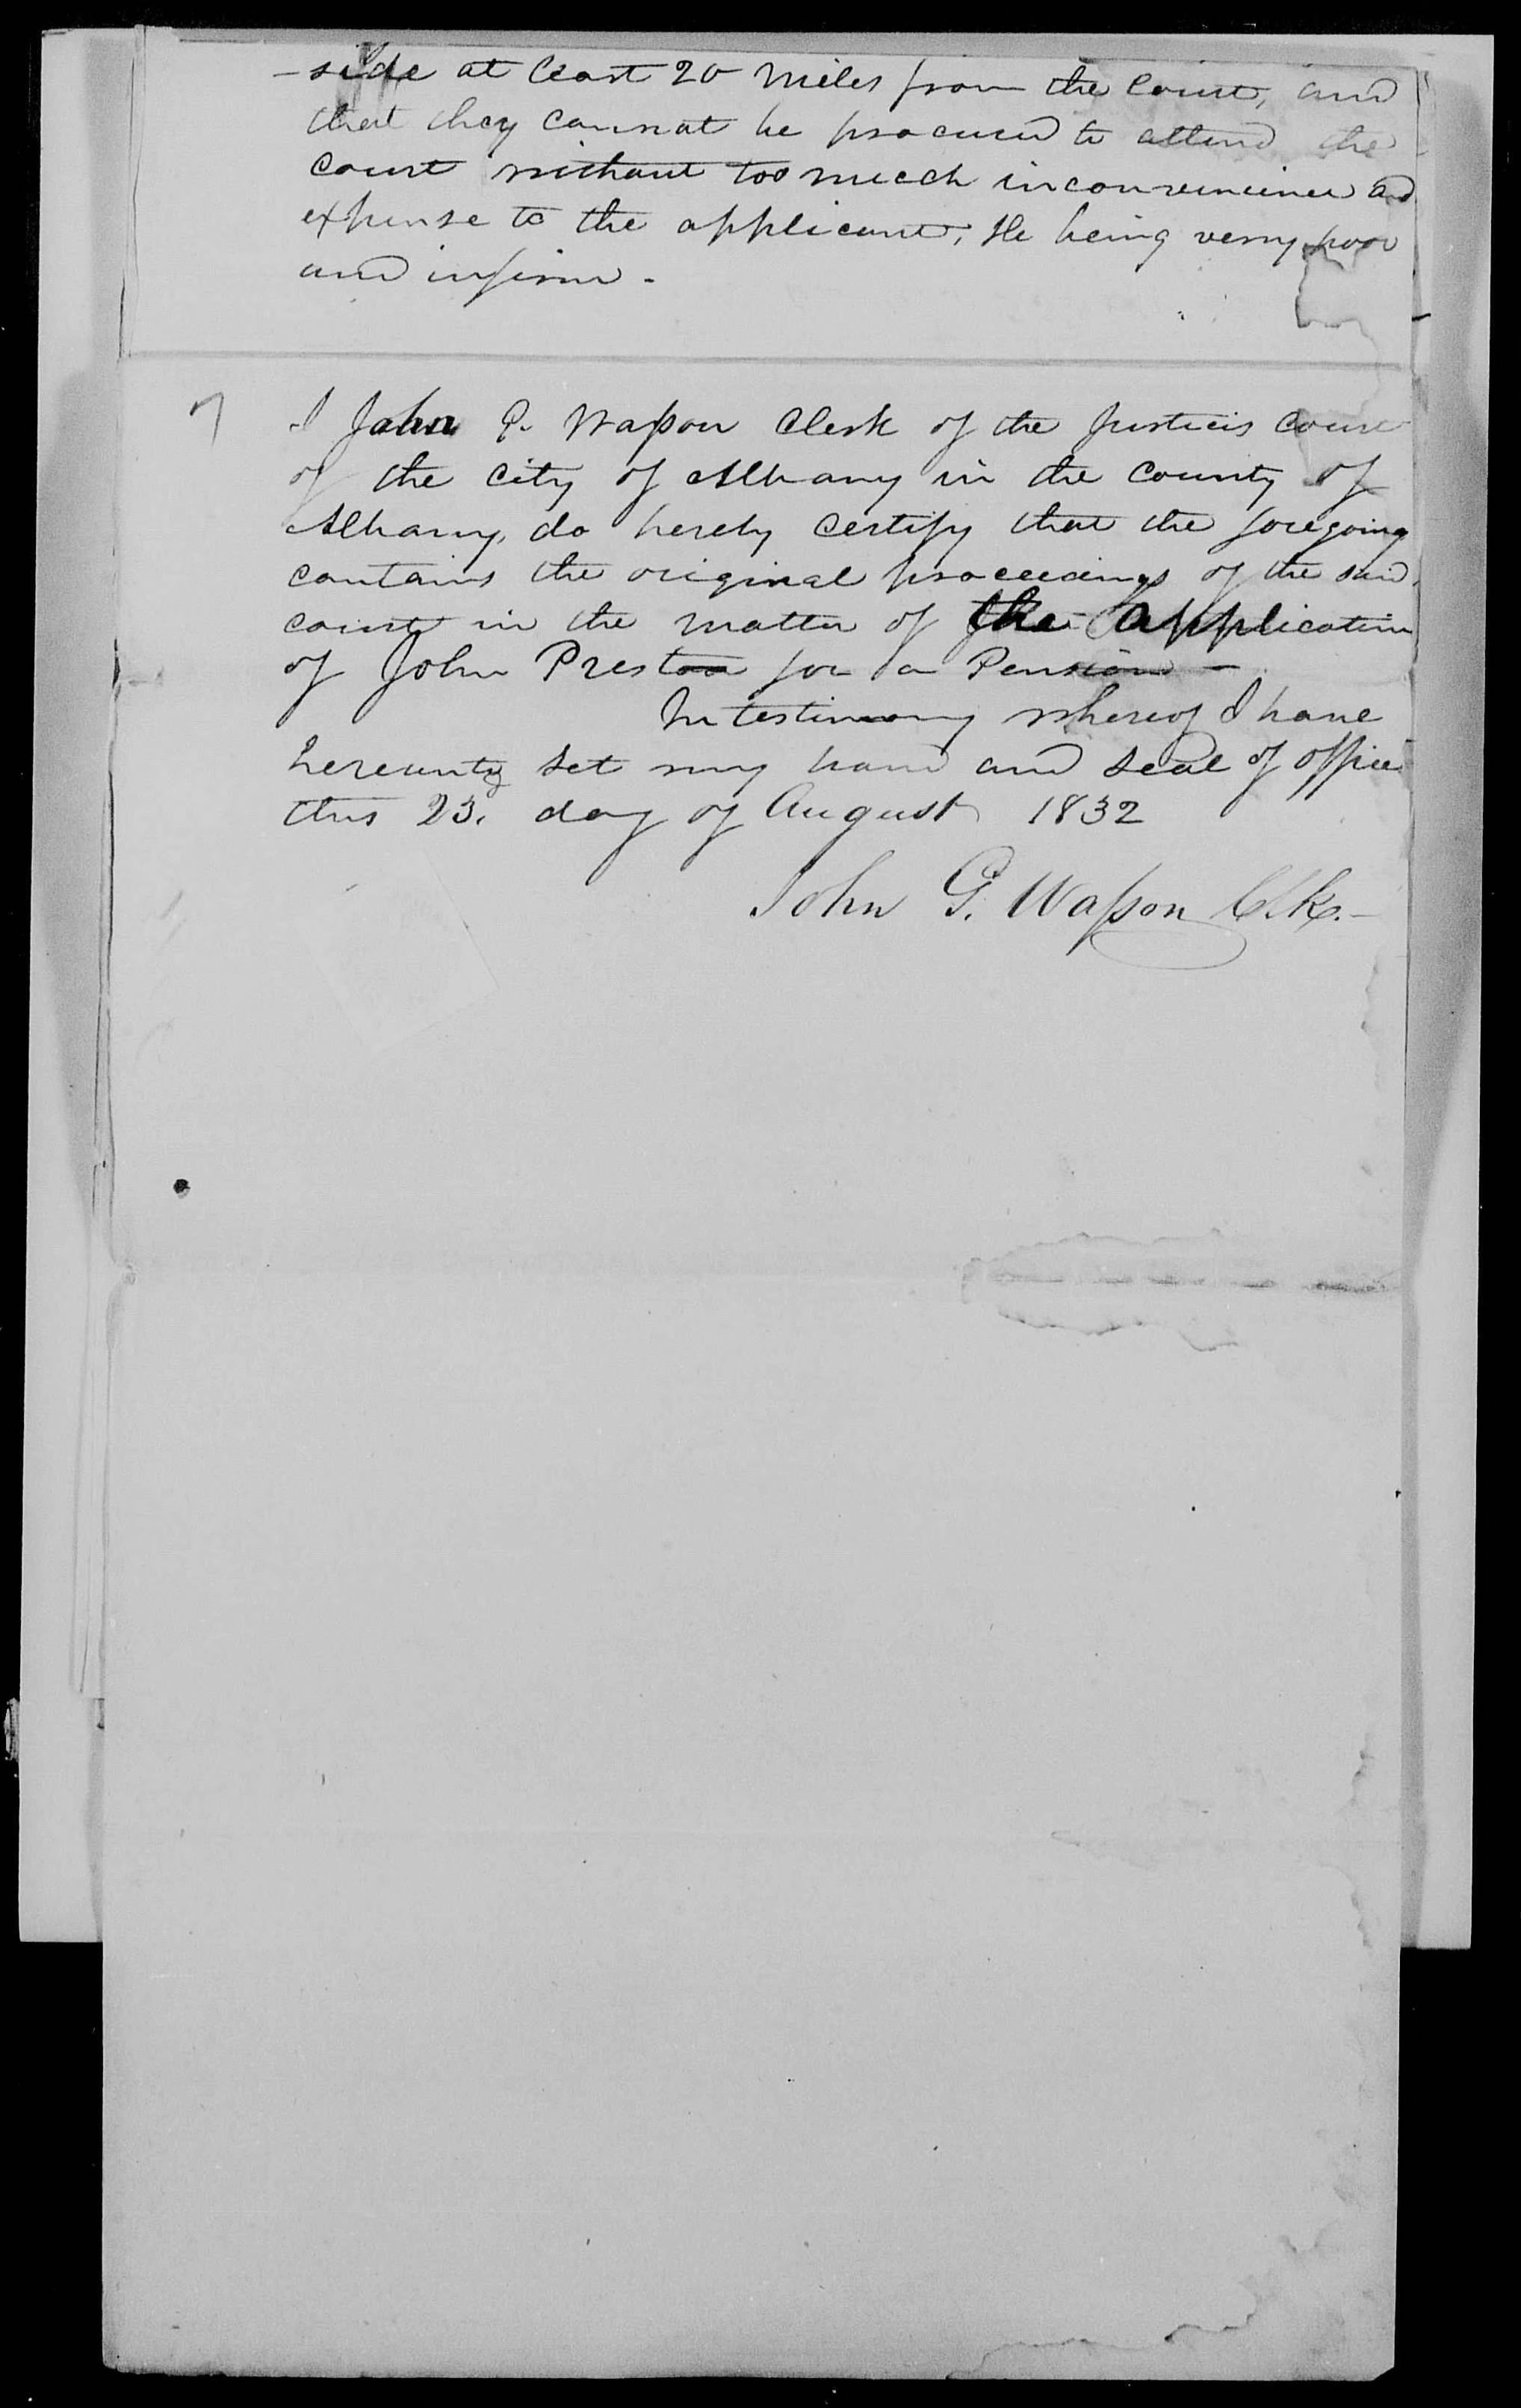 - side at least 20 miles from the Court, and
that they cannot be procured to attend the
court without too much inconvenience and
expense to the applicant, He being very poor
and infirm -
7
I John G. Wasson Clerk of the Justices Court
of the city of Albany in the County of
Albany, do hereby certify that the foregoing
contains the original proceedings of the said
court in the matter of the application
of John Preston for a Pension -
In testimony whereof I have
hereunto set my hand and seal of office
this 23. day of August 1832
John G. Wasson Clk. -